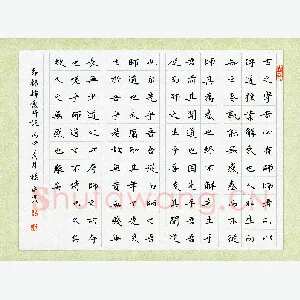 古之學者必有師師者所以
傳道受業解惑也人非生而
知之者孰能無惑惑而不從
師其為惑也終不解矣生乎
吾前其聞道也固先乎吾吾
從而師之生乎吾後其聞道
也亦先乎吾吾從而師之吾
師道也夫庸知其年之先後
生於吾乎是故無貴無賤無
長無少道之所存師之所存
也嗟乎師道之不傳也久矣
欲人之無惑也難矣
錄韓愈師說